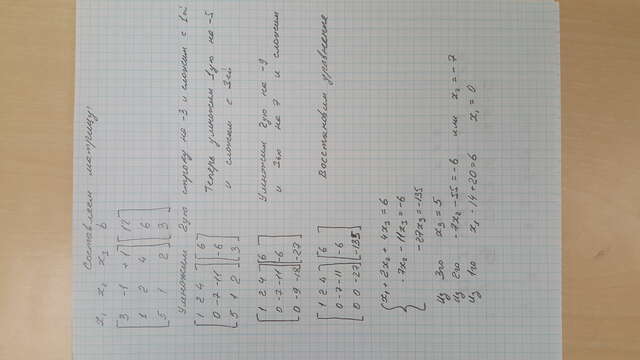 Составляем матрицу:
x₁ x₂ x₃ b
3 -1 +1 12
1 2 4 6
5 1 2 3
Умножим 2ую строку на -3 и сложим с 1ой
1 2 4 6
0 -7 -11 -6
5 1 2 3
Теперь умножим 1ую на -5
и сложим с 3ей
1 2 4 6
0 -7 -11 -6
0 -9 -18 -27
Умножим 2ую на -9
и 3ью на 7 и сложим
1 2 4 6
0 -7 -11 -6
0 0 -27 -135
Восстановим уравнение
x₁ + 2x₂ + 4x₃ = 6
-7x₂ - 11x₃ = -6
-27x₃ = -135
Из 3го x₃ = 5
Из 2го -7x₂ - 55 = -6 или x₂ = -7
Из 1го x₁ - 14 + 20 = 6 x₁ = 0